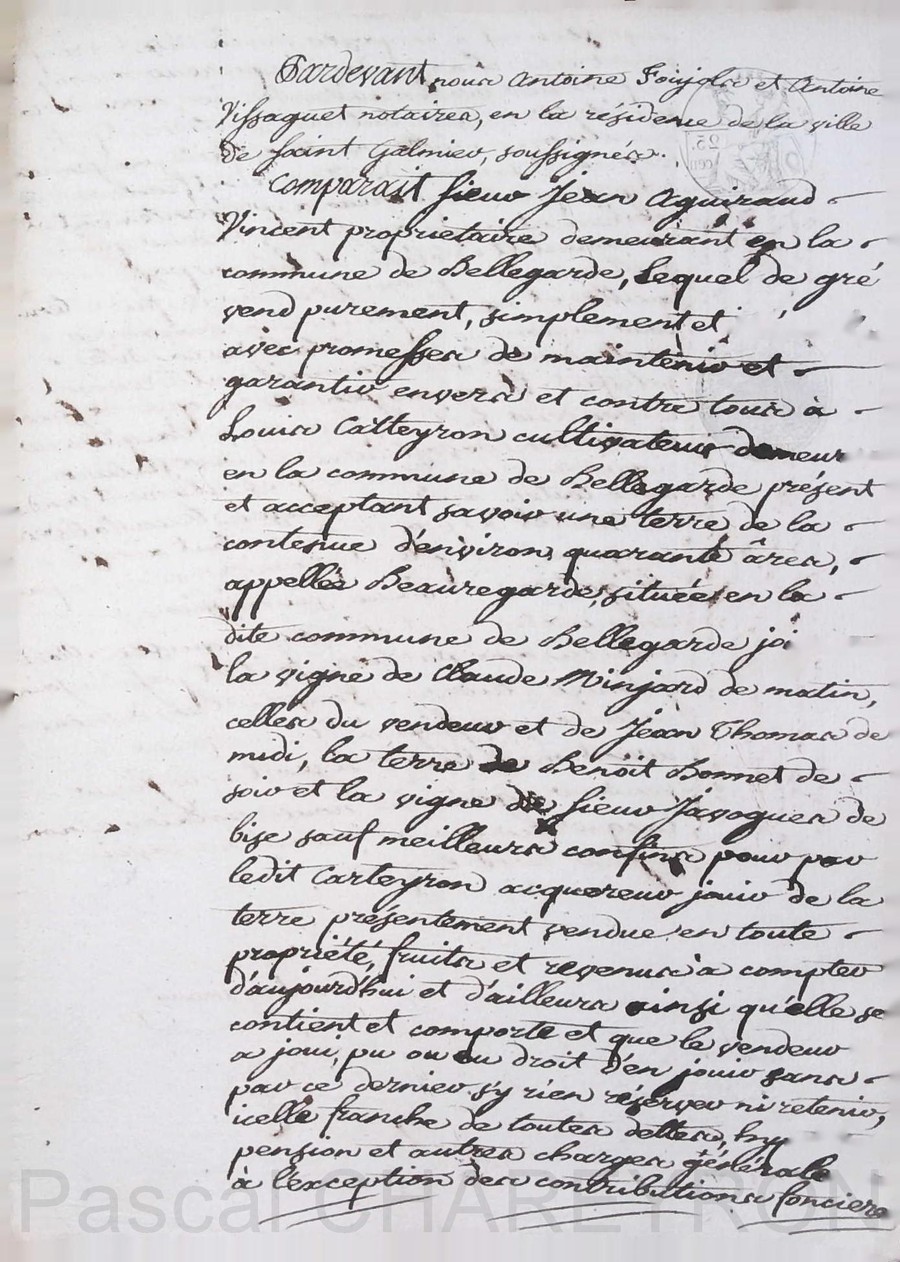 Pardevant nous Antoine Foujols et Antoine
Vissaguet notaires, en la résidence de la ville
de Saint Galmier, soussignés.
Comparait sieur Jean Aguiraud
Vincent proprietaire demeurant en la
commune de Bellegarde, Lequel de gré
vend purement, simplement et
avec promesses de maintenir et
garantir envers et contre tous à
Louis Catteyron cultivateur demeur
en la commune de Bellegarde présent
et acceptant savoir une terre de la
contenue d'environ quarante âres,
appellée Beauregarde, située en la
dite commune de Bellegarde joi
la vigne de Claude Minjard de matin,
celles du vendeur et de Jean Thomas de
midi, la terre de Benöit Bonnet de
soir et la vigne de sieur Javogues de
bise sauf meilleurs confins pour par
ledit Carteyron acquereur jouir de la
terre présentement vendue en toute
propriété, fruits et revenus à compter
d'aujourd'hui et d'ailleurs ainsi qu'elle se
contient et comporte et que le vendeur
a joui, pu ou eu droit d'en jouir sans
par ce dernier s'y rien réserver ni retenir,
icelle franche de toutes dettes, hy
pension et autres charges générale
à l'exception des contributions foncière
Pascal CHAREYRON